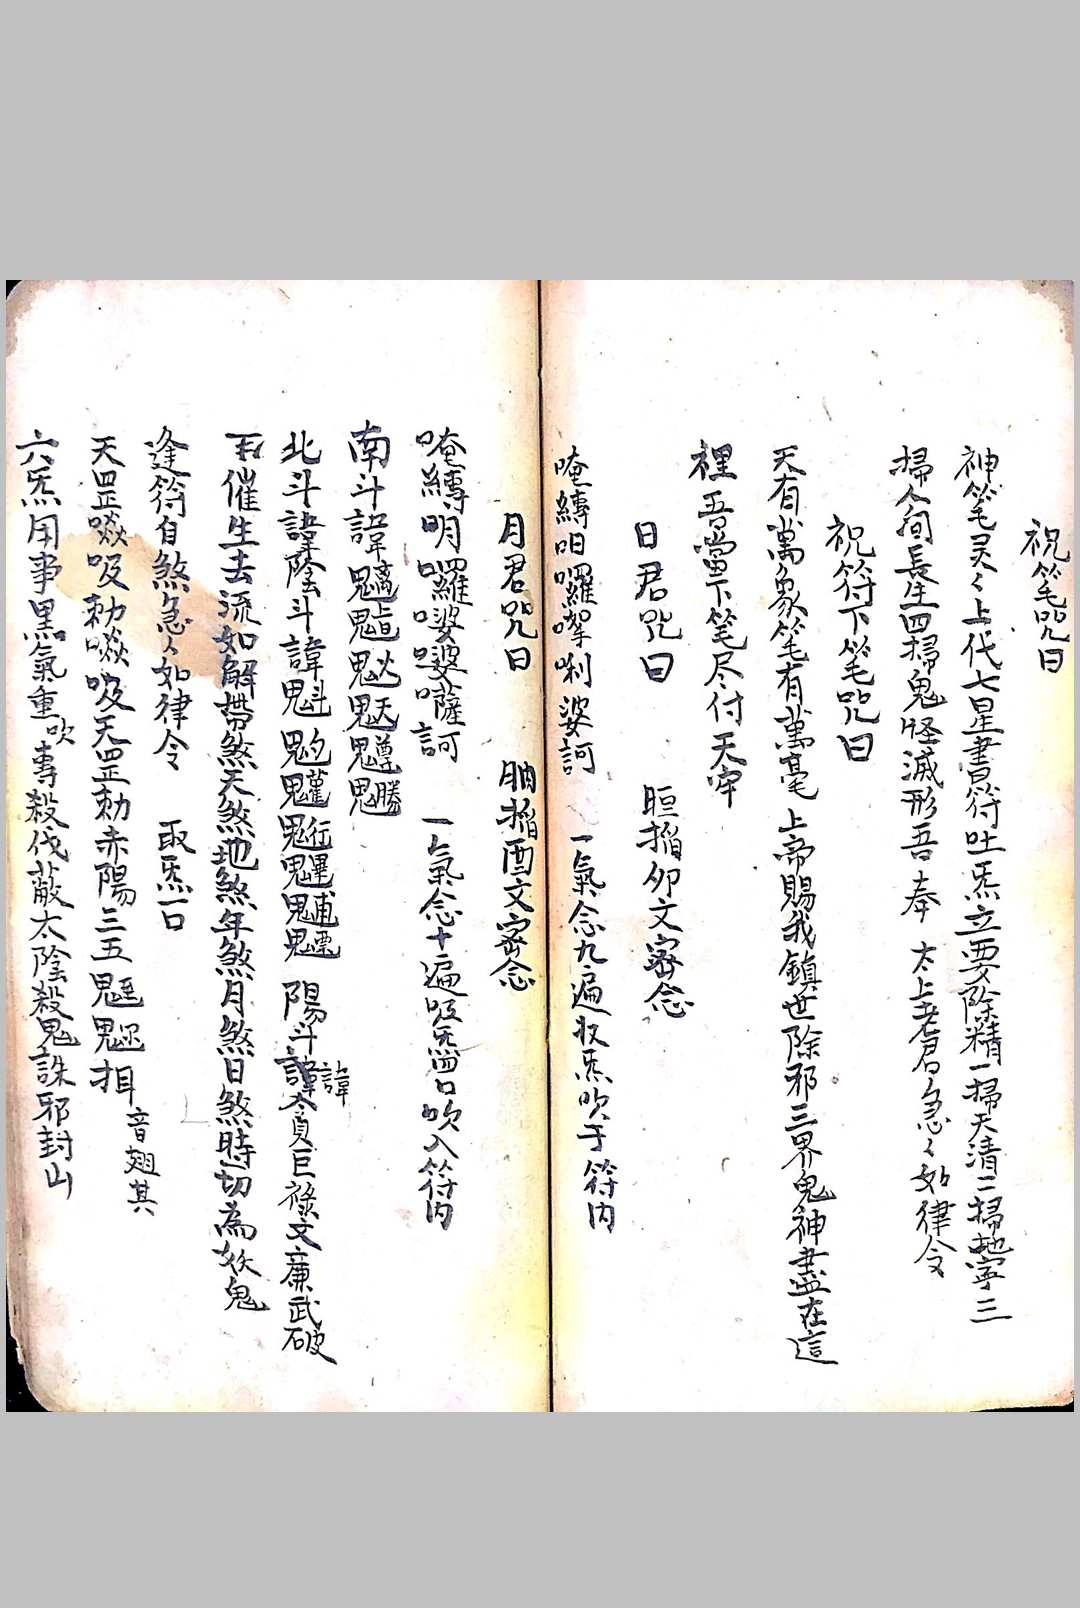 祝笔咒曰
神笔灵〻上代七星書符吐炁立要除精一掃天清二掃地寧三
掃人间長生四掃鬼怪滅形吾奉 太上老君急〻如律令
祝符下笔咒曰
天有萬象笔有萬毫上帝賜我鎮世除邪三界鬼神盡在這
裡吾當下笔尽付天牢
日君咒曰 晅搯卯文密念
唵縛呬囉㗫唎娑訶 一氣念九遍收炁吹于符内
月君咒曰 搯酉文密念
唵縛明囉婆薩訶 一氣念十遍吸炁四口吹入符内
南斗諱
北斗諱陰斗諱魁 陽斗諱貪巨祿文廉武破
催生去流如解帶煞天煞地煞年煞月煞日煞時切為妖鬼
逢符自煞急〻如律令 取炁一口
天罡吸勅吸天罡勅赤陽三五 音翅其
六炁用事黑氣重吹專殺伐蔽太陰殺鬼誅邪封山